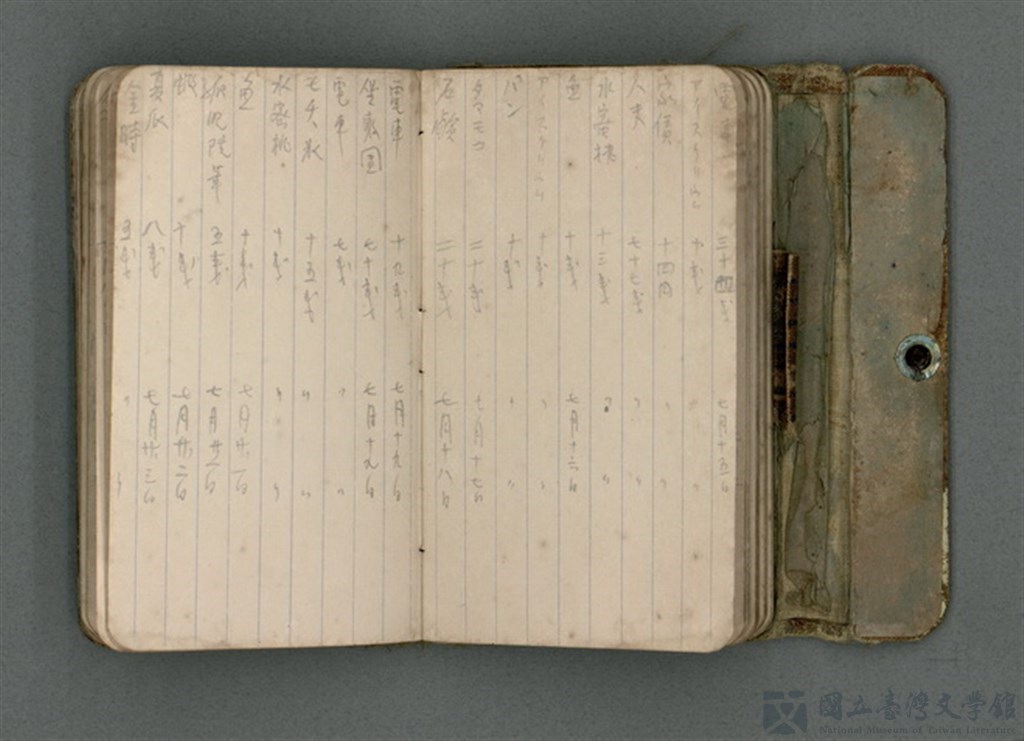 電車 三十四戔 七月十五日
アイスクリーム 十戔 〃 〃
家債 十四円 〃 〃
人夫 七十七戔 〃 〃
水蜜桃 十三戔 〃 〃
魚 十戔 七月十六日
アイスクリーム 十戔 〃 〃
パン 十戔 〃 〃
タマゴ 二十戔 七月十七日
石鹸 二十戔 七月十八日
電車 十九戔 七月十九日
坐敷 七十戔 七月十九日
電車 七戔 〃 〃
モチ 十五戔 〃 〃
水蜜桃 十戔 〃 〃
魚 十戔 七月廿一日
五戔 七月廿一日
桃 十戔 七月廿二日
夏瓜 八戔 七月廿三日
金時 五戔 〃 〃
國立臺灣文學館
National Museum of Taiwan Literature